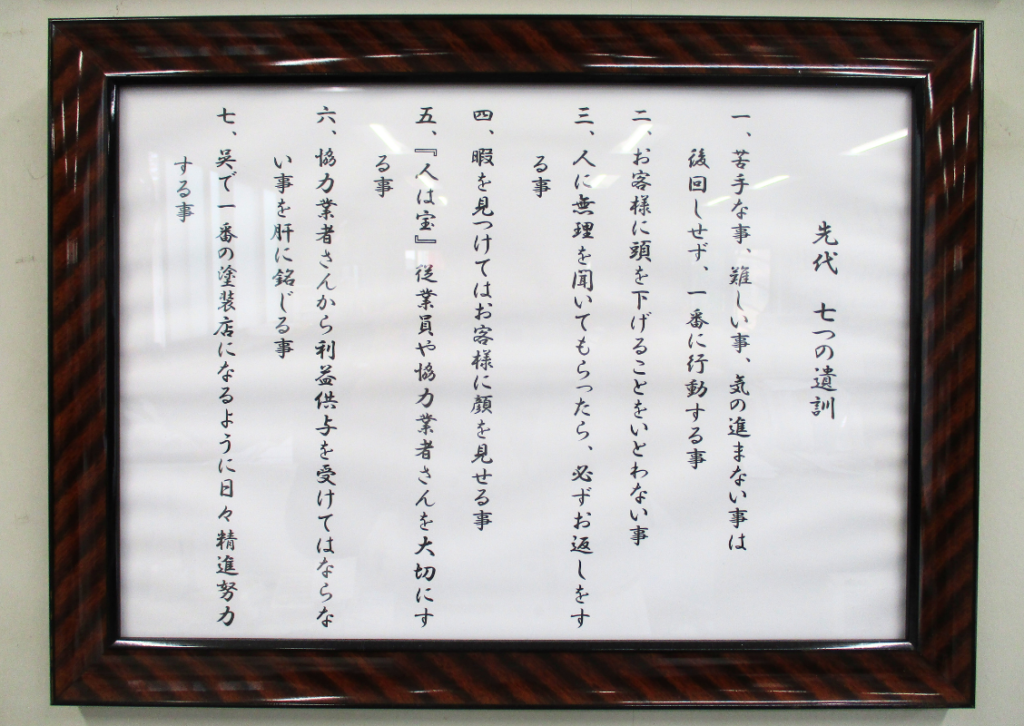 先代　七つの遺訓
一、苦手な事、難しい事、気の進まない事は
後回しせず、一番に行動する事
二、お客様に頭を下げることをいとわない事
三、人に無理を聞いてもらったら、必ずお返しをす
る事
四、暇を見つけてはお客様に顔を見せる事
五、『人は宝』従業員や協力業者さんを大切にす
る事
六、協力業者さんから利益供与を受けてはならな
い事を肝に銘じる事
七、呉で一番の塗装店になるように日々精進努力
する事